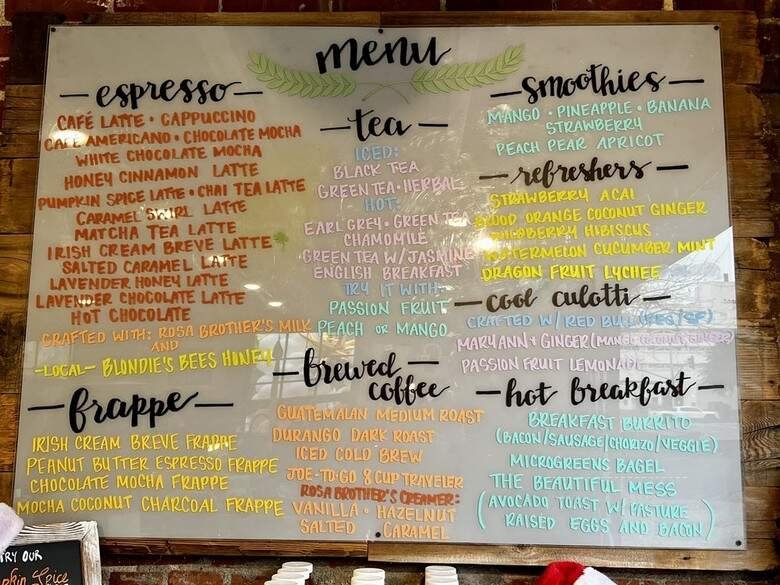 menu
espresso
CAFÉ LATTE • CAPPUCCINO
CAFE AMERICANO • CHOCOLATE MOCHA
WHITE CHOCOLATE MOCHA
HONEY CINNAMON LATTE
PUMPKIN SPICE LATTE • CHAI TEA LATTE
CARAMEL SWIRL LATTE
MATCHA TEA LATTE
IRISH CREAM BREVE LATTE
SALTED CARAMEL LATTE
LAVENDER HONEY LATTE
LAVENDER CHOCOLATE LATTE
HOT CHOCOLATE
CRAFTED WITH: ROSA BROTHER'S MILK
AND
-LOCAL- BLONDIE'S BEES HONEY
frappe
IRISH CREAM BREVE FRAPPE
PEANUT BUTTER ESPRESSO FRAPPE
CHOCOLATE MOCHA FRAPPE
MOCHA COCONUT CHARCOAL FRAPPE
tea
ICED:
BLACK TEA
GREEN TEA • HERBAL
HOT:
EARL GREY • GREEN TEA
CHAMOMILE
GREEN TEA W/ JASMINE
ENGLISH BREAKFAST
TRY IT WITH:
PASSION FRUIT
PEACH OR MANGO
brewed
coffee
GUATEMALAN MEDIUM ROAST
DURANGO DARK ROAST
ICED COLD BREW
JOE-TO-GO 8 CUP TRAVELER
ROSA BROTHER'S CREAMER:
VANILLA • HAZELNUT
SALTED CARAMEL
smoothies
MANGO • PINEAPPLE • BANANA
STRAWBERRY
PEACH PEAR APRICOT
refreshers
STRAWBERRY ACAI
BLOOD ORANGE COCONUT GINGER
WILDBERRY HIBISCUS
WATERMELON CUCUMBER MINT
DRAGON FRUIT LYCHEE
cool culotti
CRAFTED W/ RED BULL (REG/SF)
MARYANN + GINGER (MANGO COCONUT GINGER)
PASSION FRUIT LEMONADE
hot breakfast
BREAKFAST BURRITO
(BACON/SAUSAGE/CHORIZO/VEGGIE)
MICROGREENS BAGEL
THE BEAUTIFUL MESS
(AVOCADO TOAST W/ PASTURE
RAISED EGGS AND BACON)
TRY OUR
Spice